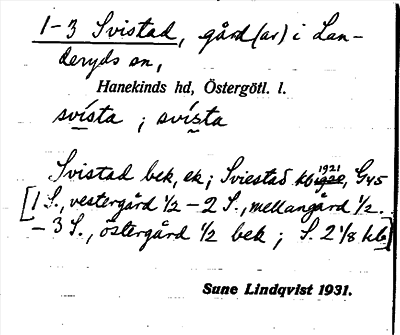 1-3 Svistad, gård(ar) i Lan-
deryds sn,
Hanekinds hd, Östergötl. l.
svista ; svista
Svistad bek, ek; Sviestad kb 1921, G45
[1 S., vestergård 1/2 - 2 S., mellangård 1/2.
- 3 S., östergård 1/2 bek; S. 2 1/8 kb]
Sune Lindqvist 1931.